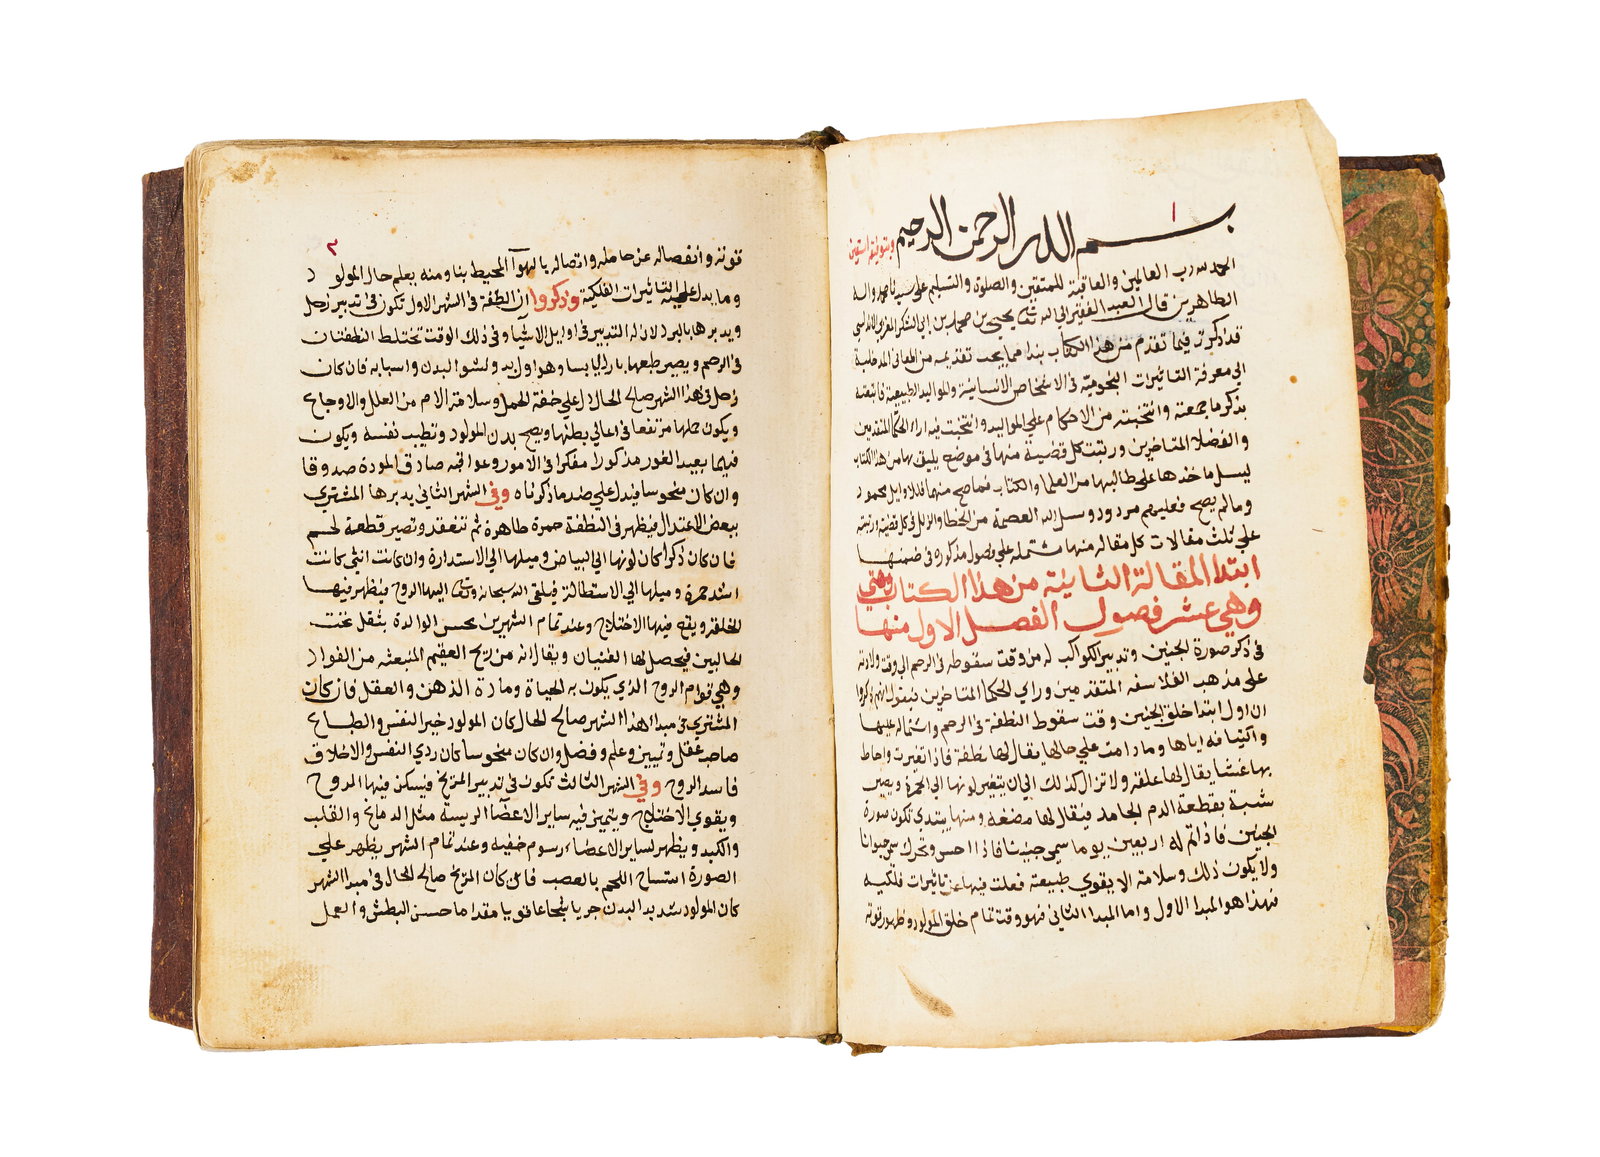 ١
بسم الله الرحمن الرحيم وبتوفيقه استعين
الحمد لله رب العالمين والعاقبة للمتقين والصلوة والتسليم على سيدنا محمد واله
الطاهرين قال العبد الفقير الي الله تعالى يحيي بن محمد بن ابي الشكر المغربي الاندلسي
قد ذكرت فيما تقدم من هذا الكتاب نبذا مما يجب تقديمه من المعاني المدخلية
الي معرفة التاثيرات النجومية في الاشخاص الانسانية والمواليد الطبيعية فاتبعته
بذكر ما جمعته وانتخبته من الاحكام علي المواليد وانتخبت فيه اراء الحكما المتقدمين
والفضلا المتاخرين ورتبت كل قضية منها في موضع يليق بها من هذا الكتاب
ليسهل ماخذها على طالبها من العلما والكتاب فما صح منها فللاوايل محمود
وما لم يصح فعليهم مردود ونسل الله العصمة من الخطا والزلل في كل قضية ورتبته
علي ثلث مقالات كل مقاله منها مشتملة علي فصول مذكوره في ضمنها
ابتدا المقالة الثانية من هذا الكتاب
وهي عشر فصول الفصل الاول منها
في ذكر صورة الجنين وتدبير الكواكب له من وقت سقوطه في الرحم الي وقت ولادته
على مذهب الفلاسفه المتقدمين وراي الحكما المتاخرين فنقول انهم ذكروا
ان اول ابتدا خلق الجنين وقت سقوط النطفة في الرحم واشتماله عليها
واكتنافه اياها وما دامت علي حالها يقال لها نطفة فاذا تغيرت واحاط
بها غشا يقال لها علقه ولا تزال كذلك الي ان يتغير لونها الي الحمرة ويصير
شبه بقطعة الدم الجامد فيقال لها مضغه ومنها يبتدي تكون صورة
الجنين فاذا تم له اربعين يوما سمي جنينا فاذا احس وتحرك سمي حيوانا
ولا يكون ذلك وسلامة الا بقوي طبيعته فعلت فيها عن تاثيرات فلكيه
فهذا هو المبدا الاول واما المبدا الثاني فهو وقت تمام خلق المولود وظهور قوته
٢
قوته وانفصاله عن حامله واتصاله بالهوآ المحيط بنا ومنه يعلم حال المولود
وما يدل عليه التاثيرات الفلكية وذكروا ان النطفة في الشهر الاول تكون في تدبير زحل
ويدبرها بالبرد لان له التدبير في اوايل الاشيآ وفي ذلك الوقت تختلط النطفتان
في الرحم ويصير طبعهما باردا يابسا وهو اول بدو نشو البدن واسبابه فان كان
زحل في هذا الشهر صالح الحال دل علي خفة الحمل وسلامة الام من العلل والاوجاع
ويكون حملها مرتفعا في اعالي بطنها ويصح بدن المولود وتطيب نفسه ويكون
فهيما بعيد الغور مذكورا مفكرا في الامور وعواقبه صادق المودة صدوقا
وان كان منحوسا فيدل علي ضد ما ذكرناه وفي الشهر الثاني يدبرها المشتري
ببعض الاعتدال فيظهر في النطفة حمرة طاهرة ثم تنعقد وتصير قطعة لحم
فان كان ذكرا كان لونها الي البياض وميلها الي الاستدارة وان كانت انثي كانت
اشد حمرة وميلها الي الاستطالة فيلقى الله سبحانه وتعالى اليها الروح فيظهر فيها
الخلقه ويقع فيها الاختلاج وعند تمام الشهرين يحس الوالدة بثقل تحت
الحالبين فيحصل لها الغثيان ويقال انه من ريح العقيم المنبعثه من الفواد
وهي قوام الروح الذي يكون به الحياة ومادة الذهن والعقل فان كان
المشتري في مبدا هذا الشهر صالح الحال كان المولود خير النفس والطباع
صاحب عقل وتمييز وعلم وفضل وان كان منحوسا كان ردي النفس والاخلاق
فاسد الروح وفي الشهر الثالث تكون في تدبير المريخ فيسكن فيها الروح
ويقوي الاختلاج ويتميز فيه ساير الاعضآ الريسة مثل الدماغ والقلب
والكبد ويظهر لساير الاعضاء رسوم خفيه وعند تمام الشهر يظهر علي
الصورة انتساج اللحم بالعصب فان كان المريخ صالح الحال في مبدا الشهر
كان المولود شديد البدن جريا شجاعا قويا مقداما حسن البطش والعمل